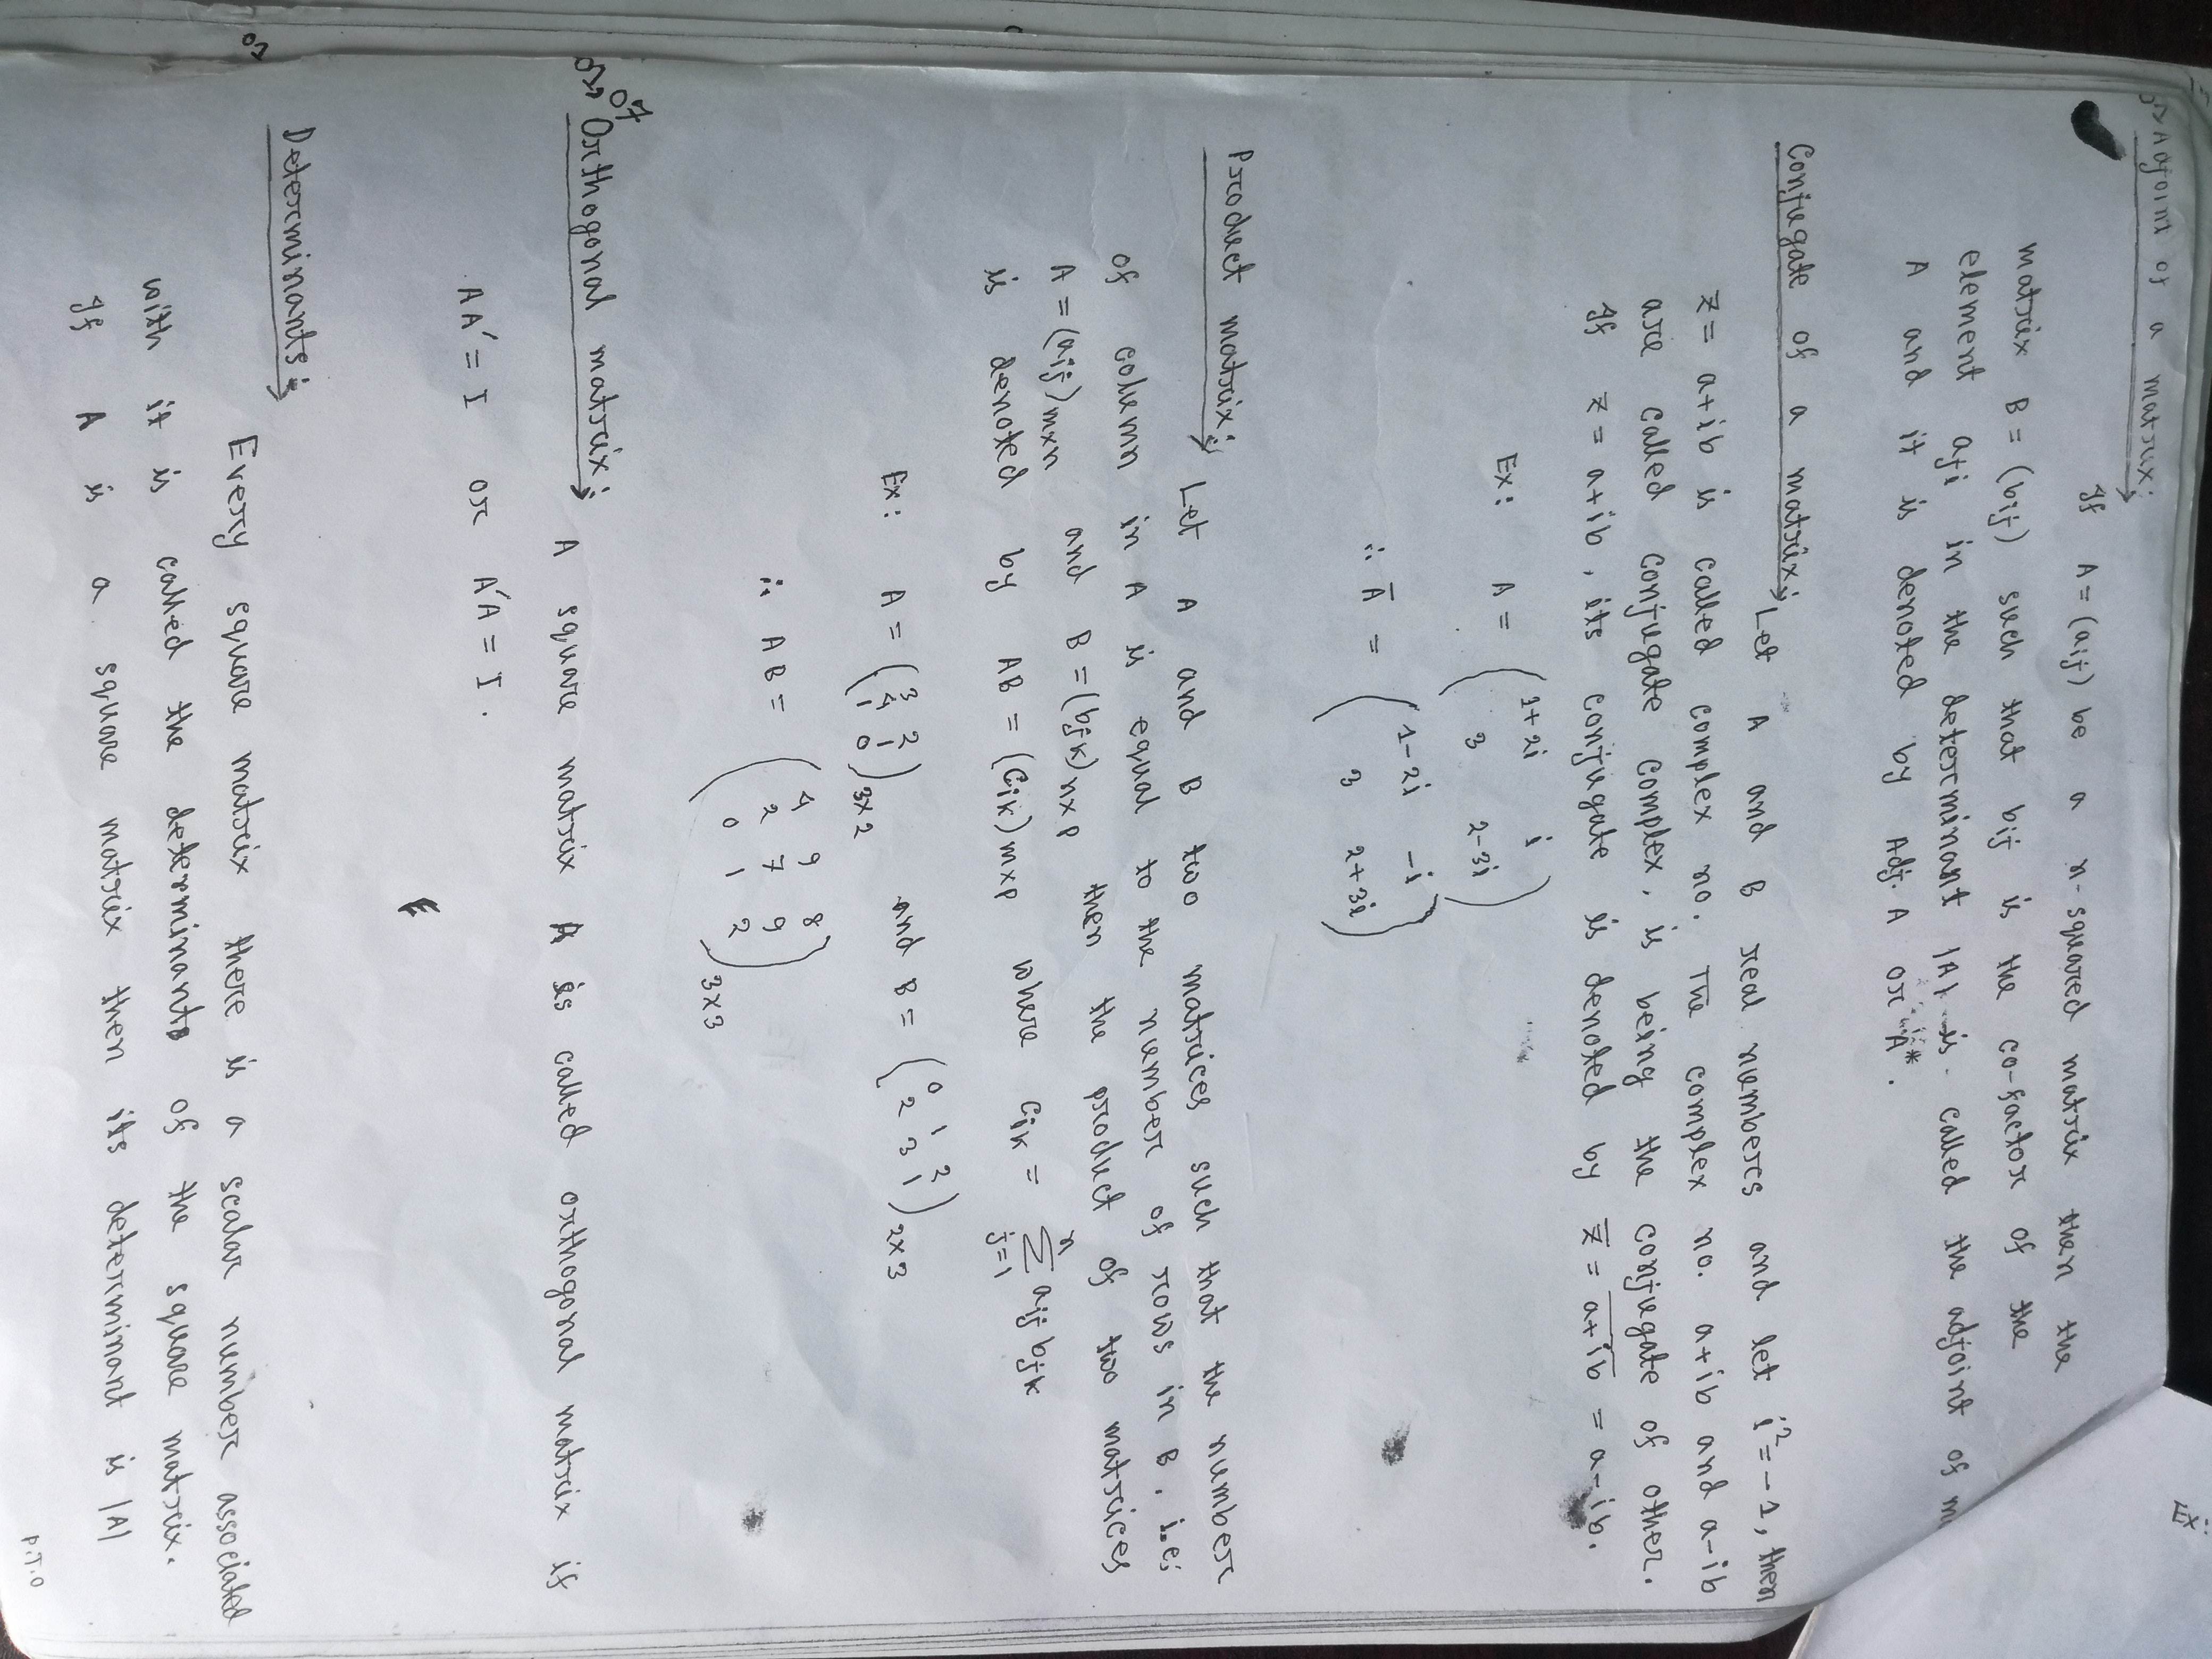 Adjoint of a matrix:
If A = (aij) be a n-squared matrix then the
matrix B = (bij) such that bij is the co-factor of the
element aji in the determinant |A| is called the adjoint of
A and it is denoted by Adj. A or A*.
Conjugate of a matrix:
Let A and B real numbers and let i²= -1, then
z = a+ib is called complex no. The complex no. a+ib and a-ib
are called conjugate complex, is being the conjugate of other.
If z = a+ib, its conjugate is denoted by z̅ = a+ib̅ = a-ib.
Ex: A = ( 1+2i i
3 2-3i )
∴ A̅ = ( 1-2i -i
3 2+3i )
Product matrix:
Let A and B two matrices such that the number
of column in A is equal to the number of rows in B. i.e;
A = (aij)m×n and B = (bjk)n×p then the product of two matrices
is denoted by AB = (Cik)m×p where Cik = Σ(j=1 to n) aij bjk
Ex: A = ( 3 2
4 1
1 0 )3×2 and B = ( 0 1 2
2 3 1 )2×3
∴ AB = ( 4 9 8
2 7 9
0 1 2 )3×3
07
Orthogonal matrix:
A square matrix A is called orthogonal matrix if
AA′ = I or A′A = I.
E
Determinants:
01
Every square matrix there is a scalar number associated
with it is called the determinants of the square matrix.
If A is a square matrix then its determinant is |A|
P.T.O
Ex: